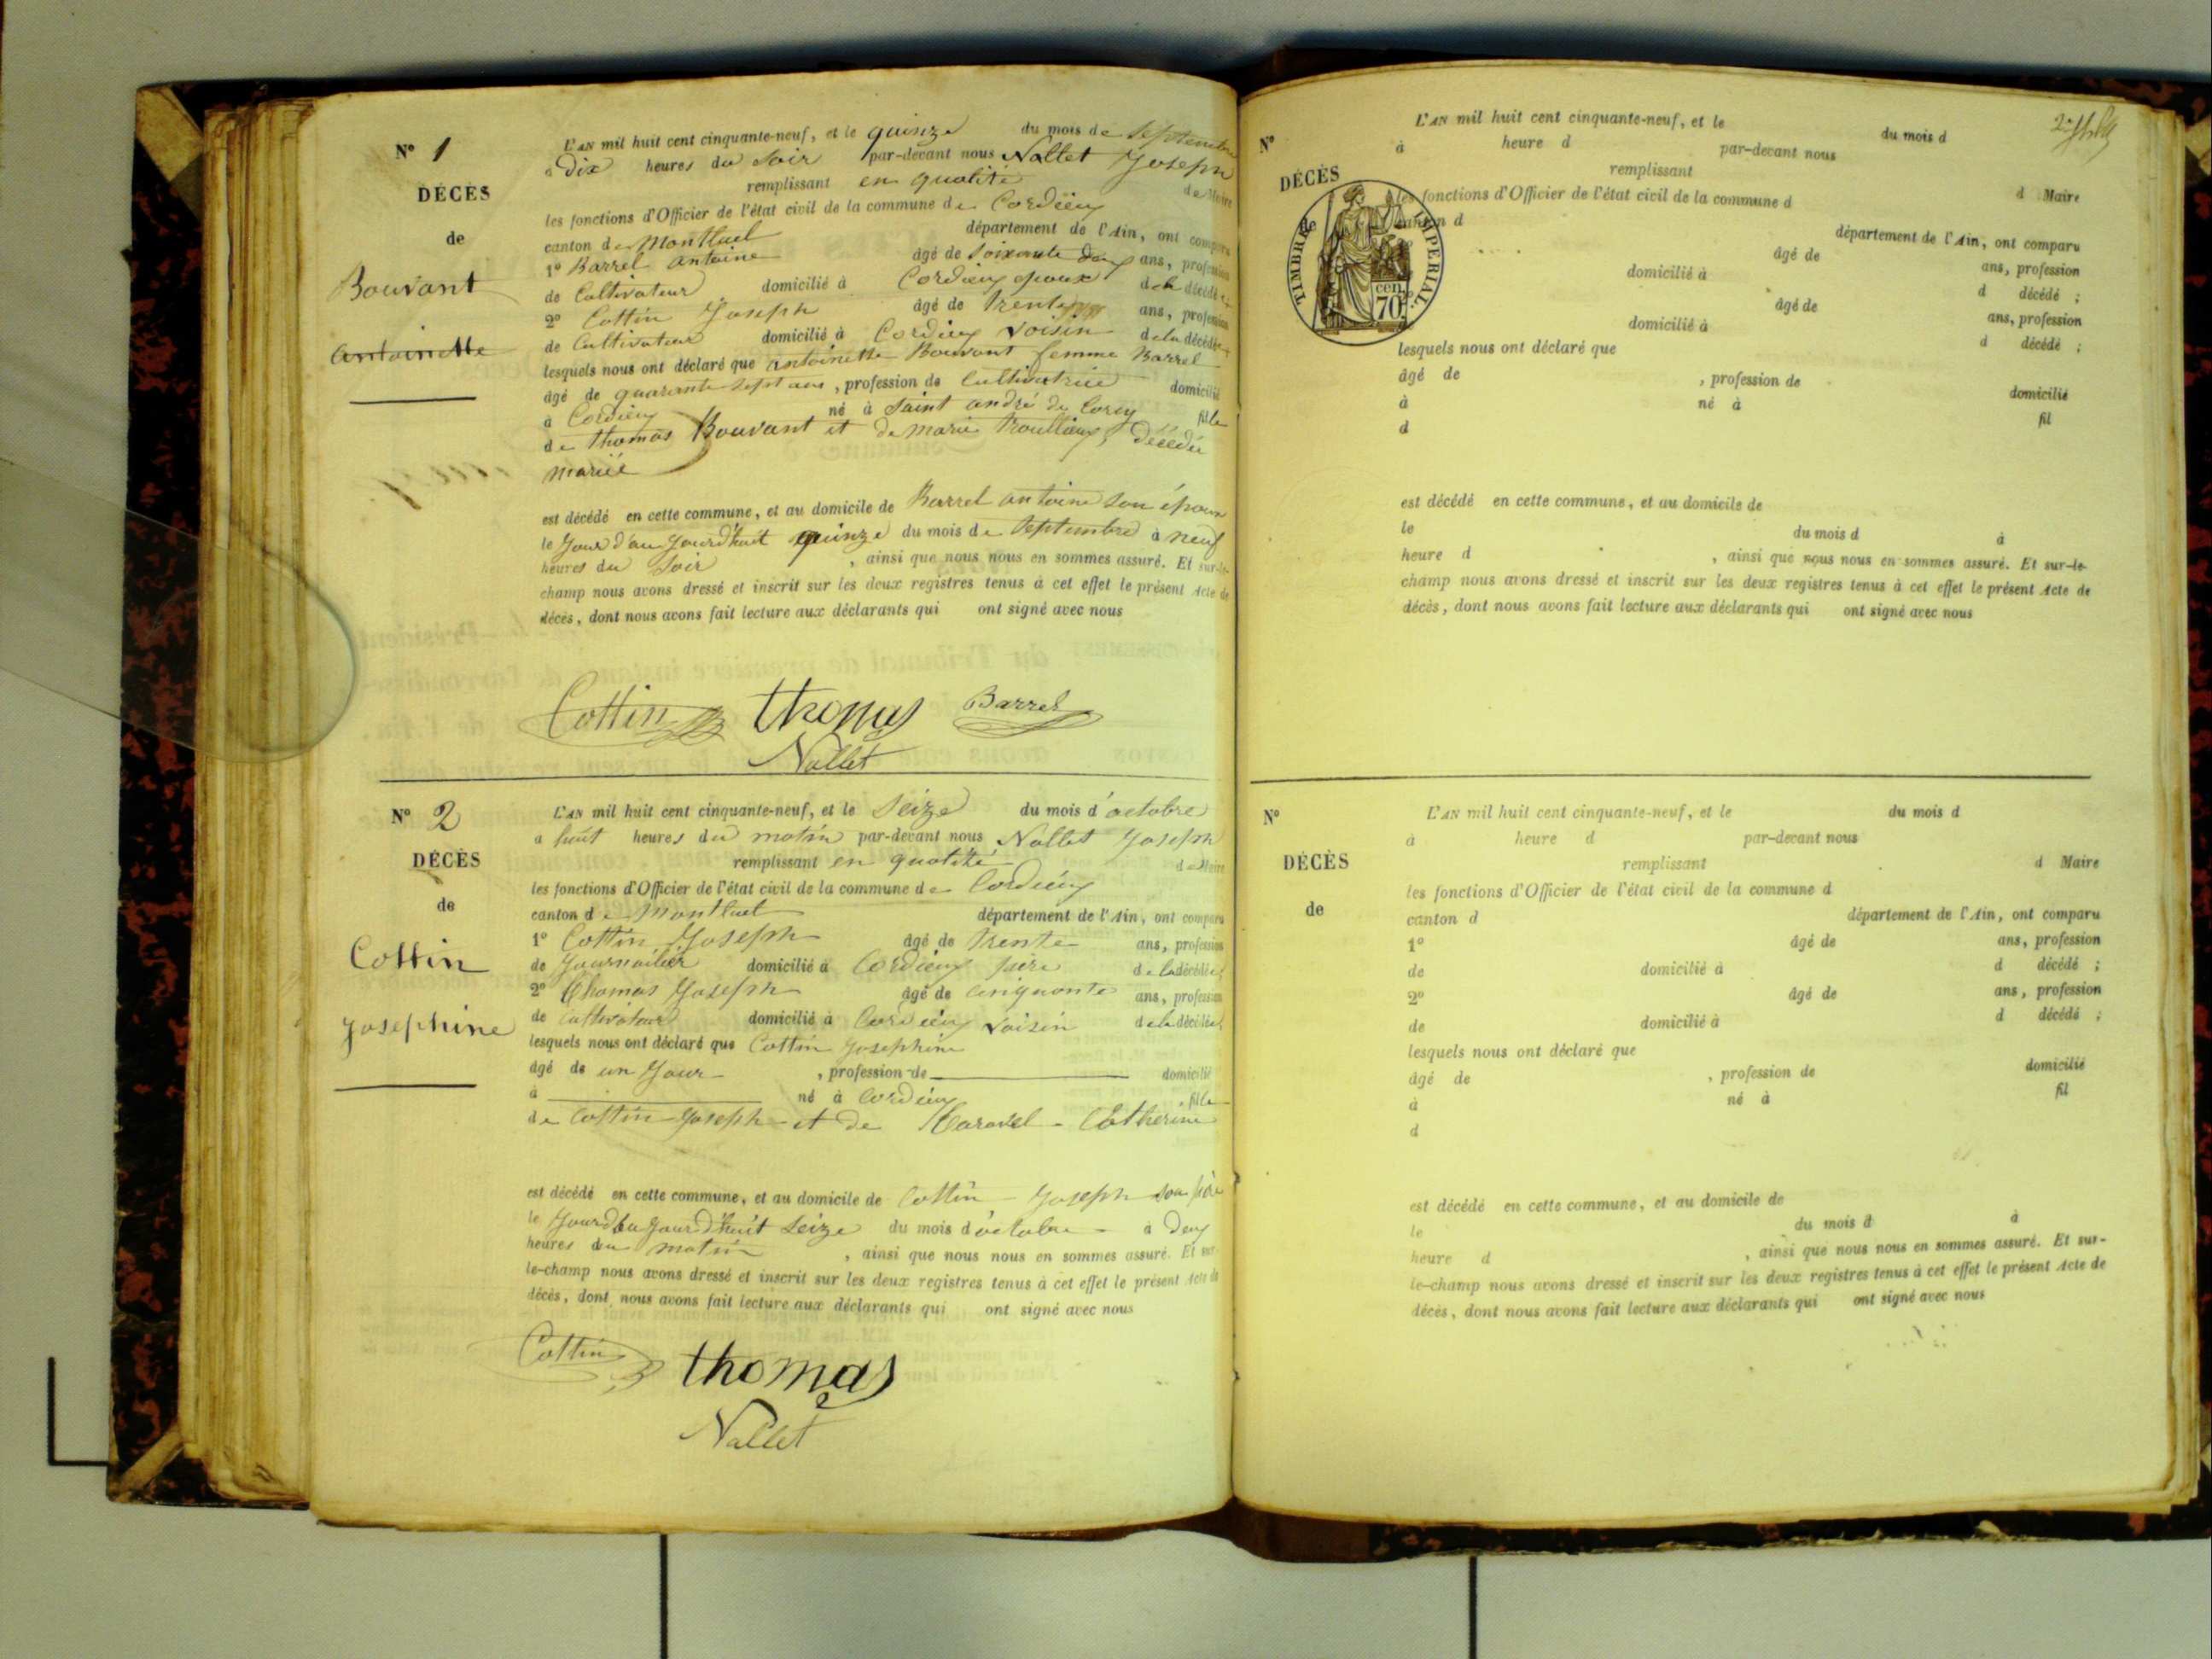 N° 1
DÉCÈS
de
Bouvant
antoinette
L'AN mil huit cent cinquante-neuf, et le quinze du mois de Septembre
à dix heures du soir par-devant nous Nallet Joseph
remplissant en qualité de Maire
les fonctions d'Officier de l'état civil de la commune de Cordieux
canton de Montluel département de l'Ain, ont comparu
1° Barrel antoine âgé de soixante deux ans, profession
de Cultivateur domicilié à Cordieux époux de la décédée
2° Cottin Joseph âgé de trente ans, profession
de Cultivateur domicilié à Cordieux voisin de la décédée
lesquels nous ont déclaré que antoinette Bouvant femme Barrel
âgé de quarante sept ans, profession de Cultivatrice domicilié
à Cordieux né à saint andré de Corcy fille
de thomas Bouvant et de marie décédée
mariée
est décédé en cette commune, et au domicile de Barrel antoine son époux
le jour d'au jourd'huit quinze du mois de Septembre à neuf
heures du soir, ainsi que nous nous en sommes assuré. Et sur-le-
champ nous avons dressé et inscrit sur les deux registres tenus à cet effet le présent Acte de
décès, dont nous avons fait lecture aux déclarants qui ont signé avec nous
Cottin thomas Barrel
Nallet
N° 2
DÉCÈS
de
Cottin
josephine
L'AN mil huit cent cinquante-neuf, et le Seize du mois d'octobre
a huit heures du matin par-devant nous Nallet Joseph
remplissant en qualité de Maire
les fonctions d'Officier de l'état civil de la commune de Cordieux
canton de Montluel département de l'Ain, ont comparu
1° Cottin Joseph âgé de trente ans, profession
de Journalier domicilié à Cordieux père de la décédée
2° Thomas Joseph âgé de cinquante ans, profession
de cultivateur domicilié à Cordieux voisin de la décédée
lesquels nous ont déclaré que Cottin Josephine
âgé de un Jour, profession de domicilié
à né à Cordieux fille
de Cottin Joseph et de Catherine
est décédé en cette commune, et au domicile de Cottin Joseph son père
le jourd'au jourd'huit Seize du mois d'octobre à deux
heures du matin, ainsi que nous nous en sommes assuré. Et sur-
le-champ nous avons dressé et inscrit sur les deux registres tenus à cet effet le présent Acte de
décès, dont nous avons fait lecture aux déclarants qui ont signé avec nous
Cottin thomas
Nallet
N°
DÉCÈS
de
TIMBRE IMPÉRIAL
70 cen
L'AN mil huit cent cinquante-neuf, et le du mois d
à heure d par-devant nous
remplissant d Maire
les fonctions d'Officier de l'état civil de la commune d
canton d département de l'Ain, ont comparu
âgé de ans, profession
domicilié à d décédé ;
âgé de ans, profession
d domicilié à d décédé ;
lesquels nous ont déclaré que
âgé de , profession de domicilié
à né à fil
d
est décédé en cette commune, et au domicile de
le du mois d à
heure d , ainsi que nous nous en sommes assuré. Et sur-le-
champ nous avons dressé et inscrit sur les deux registres tenus à cet effet le présent Acte de
décès, dont nous avons fait lecture aux déclarants qui ont signé avec nous
N°
DÉCÈS
de
L'AN mil huit cent cinquante-neuf, et le du mois d
à heure d par-devant nous
remplissant d Maire
les fonctions d'Officier de l'état civil de la commune d
canton d département de l'Ain, ont comparu
1° âgé de ans, profession
de domicilié à d décédé ;
2° âgé de ans, profession
de domicilié à d décédé ;
lesquels nous ont déclaré que
âgé de , profession de domicilié
à né à fil
d
est décédé en cette commune, et au domicile de
le du mois d à
heure d , ainsi que nous nous en sommes assuré. Et sur-
le-champ nous avons dressé et inscrit sur les deux registres tenus à cet effet le présent Acte de
décès, dont nous avons fait lecture aux déclarants qui ont signé avec nous